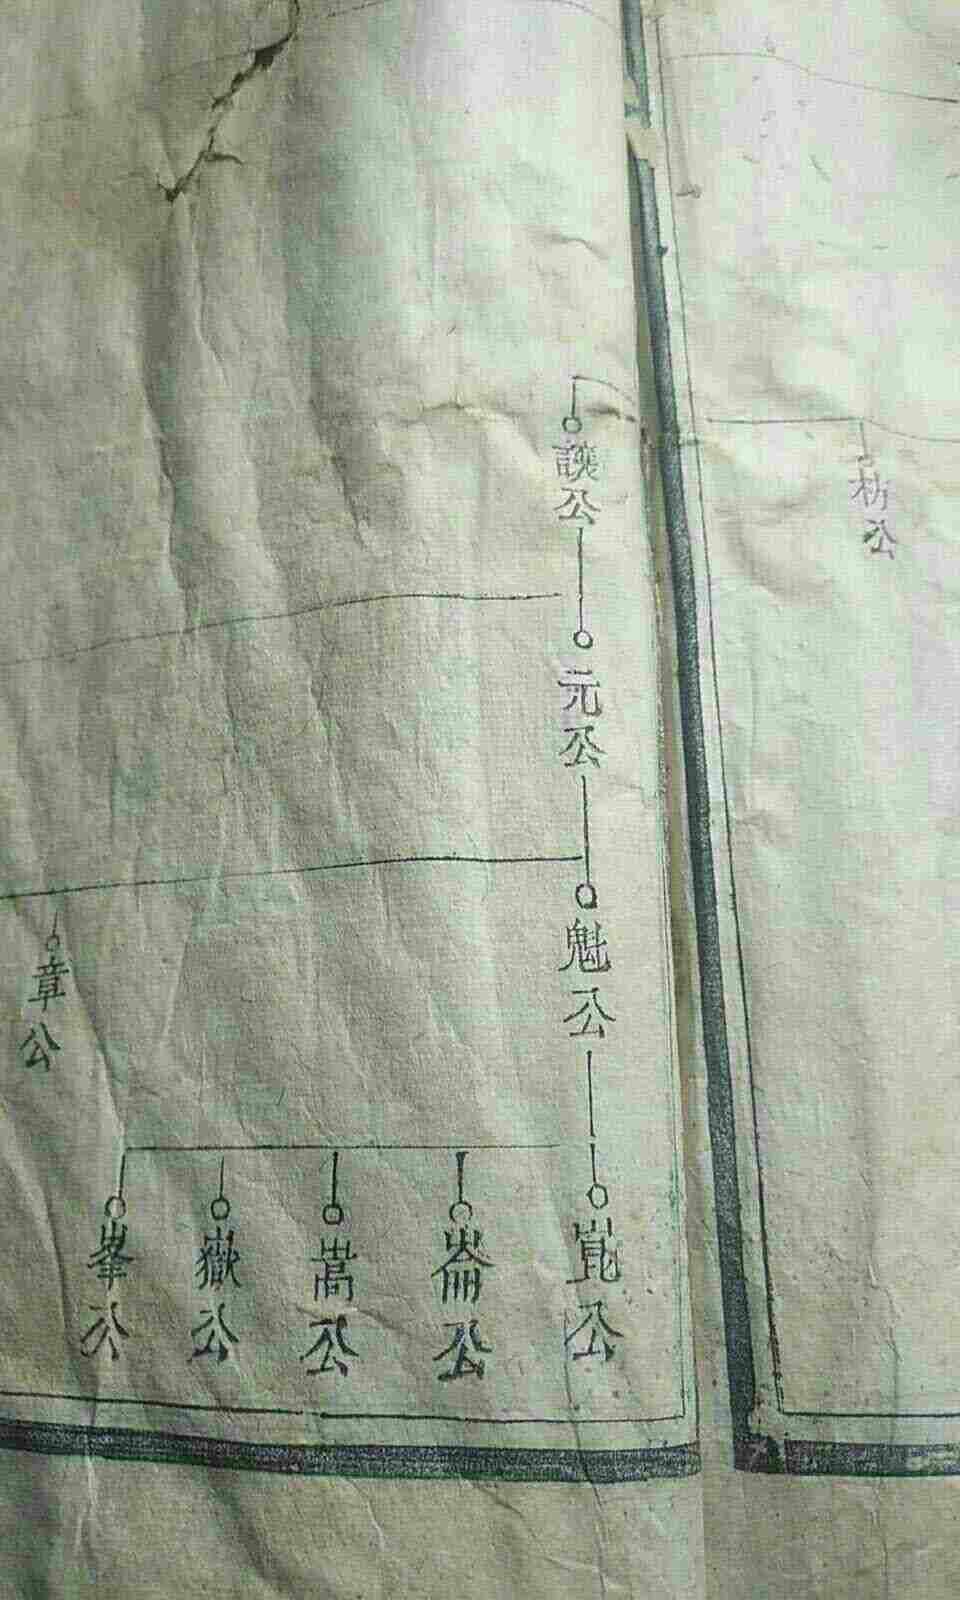 枋公
讓公
元公
魁公
崑公
崙公
嵩公
嶽公
峯公
章公